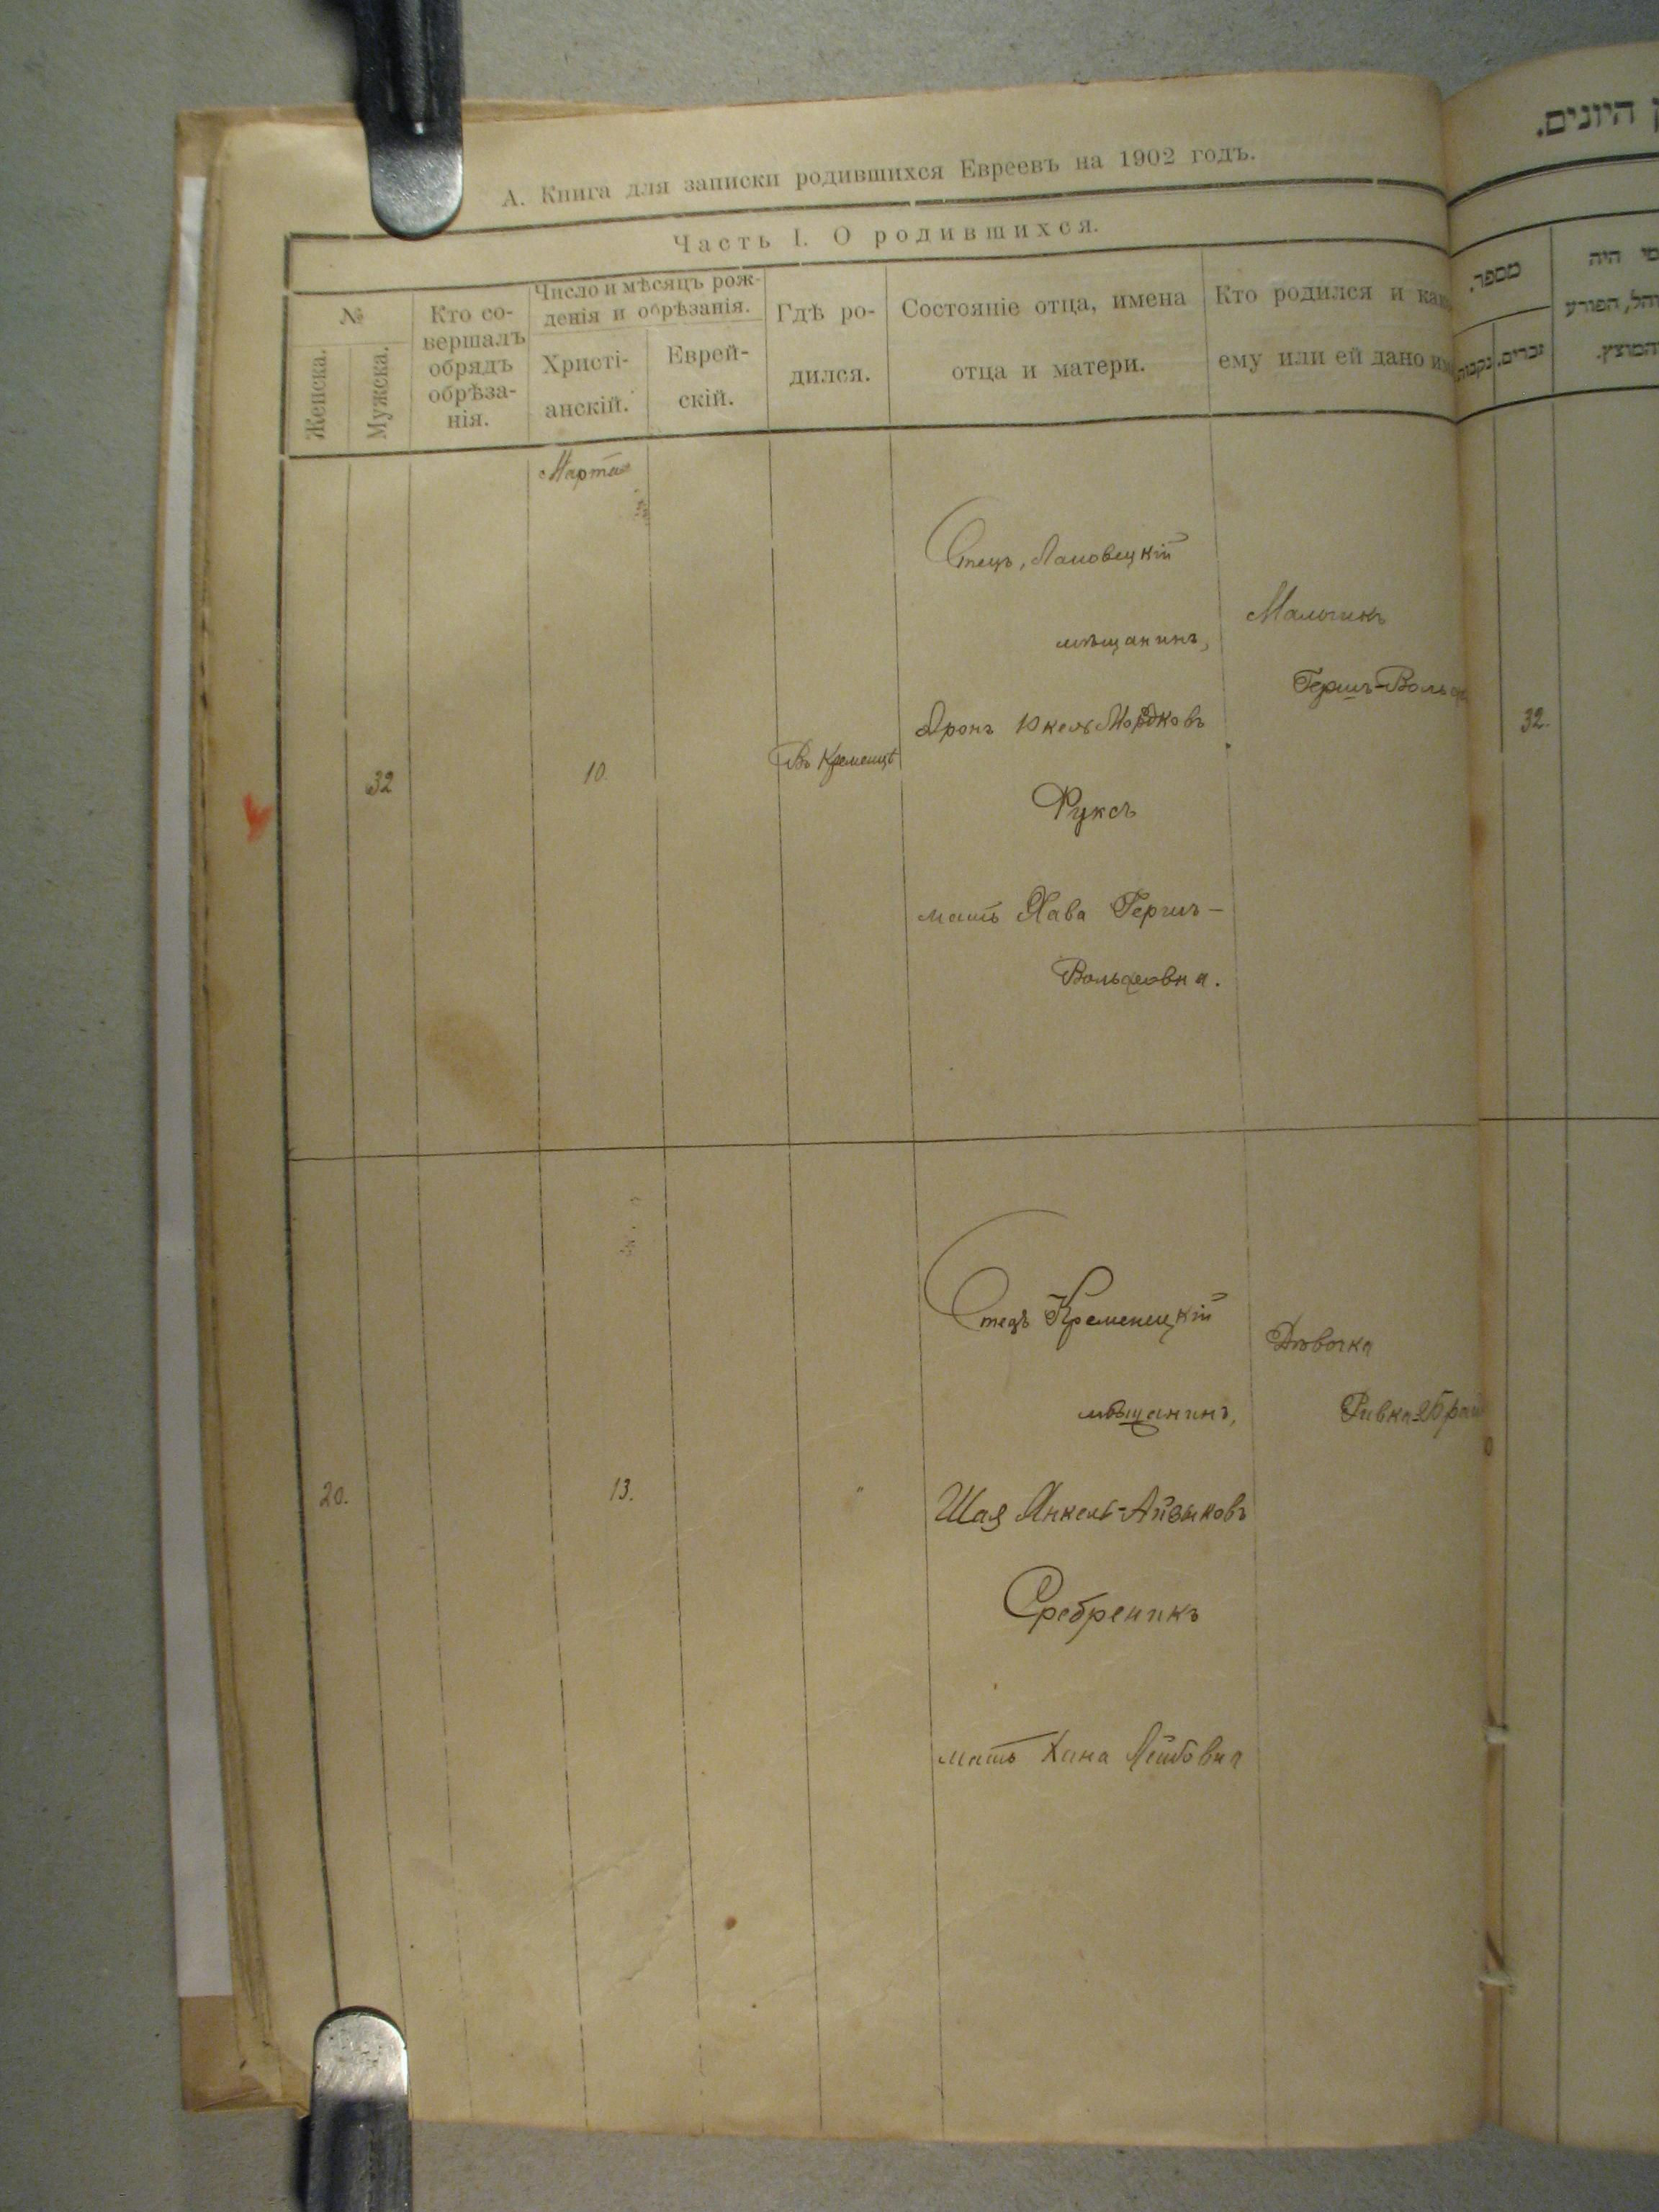 А. Книга для записки родившихся Евреевъ на 1902 годъ.
Часть I. О родившихся.
№
Женска.
Мужска.
Кто со-
вершалъ
обрядъ
обрѣза-
нія.
Число и мѣсяцъ рож-
денія и обрѣзанія.
Христі-
анскій.
Еврей-
скій.
Гдѣ ро-
дился.
Состояніе отца, имена
отца и матери.
Кто родился и как
ему или ей дано им
Марта
32
10.
Въ Кременцѣ
Отецъ, Лановецкій
мѣщанинъ,
Аронъ Юкель Мордковъ
Фуксъ
мать Хава Гершъ-
Вольфовна.
Мальчикъ
Гершъ-Вольф
20.
13.
"
Отецъ Кременецкій
мѣщанинъ,
Шая Янкель-Айзыковъ
Сребреникъ
мать Хана Лейбовна
Дѣвочка
Ривка
היונים.
מספר.
זכרים.
נקבות
מי היה
המוהל, הפורע
והמוצץ.
32.